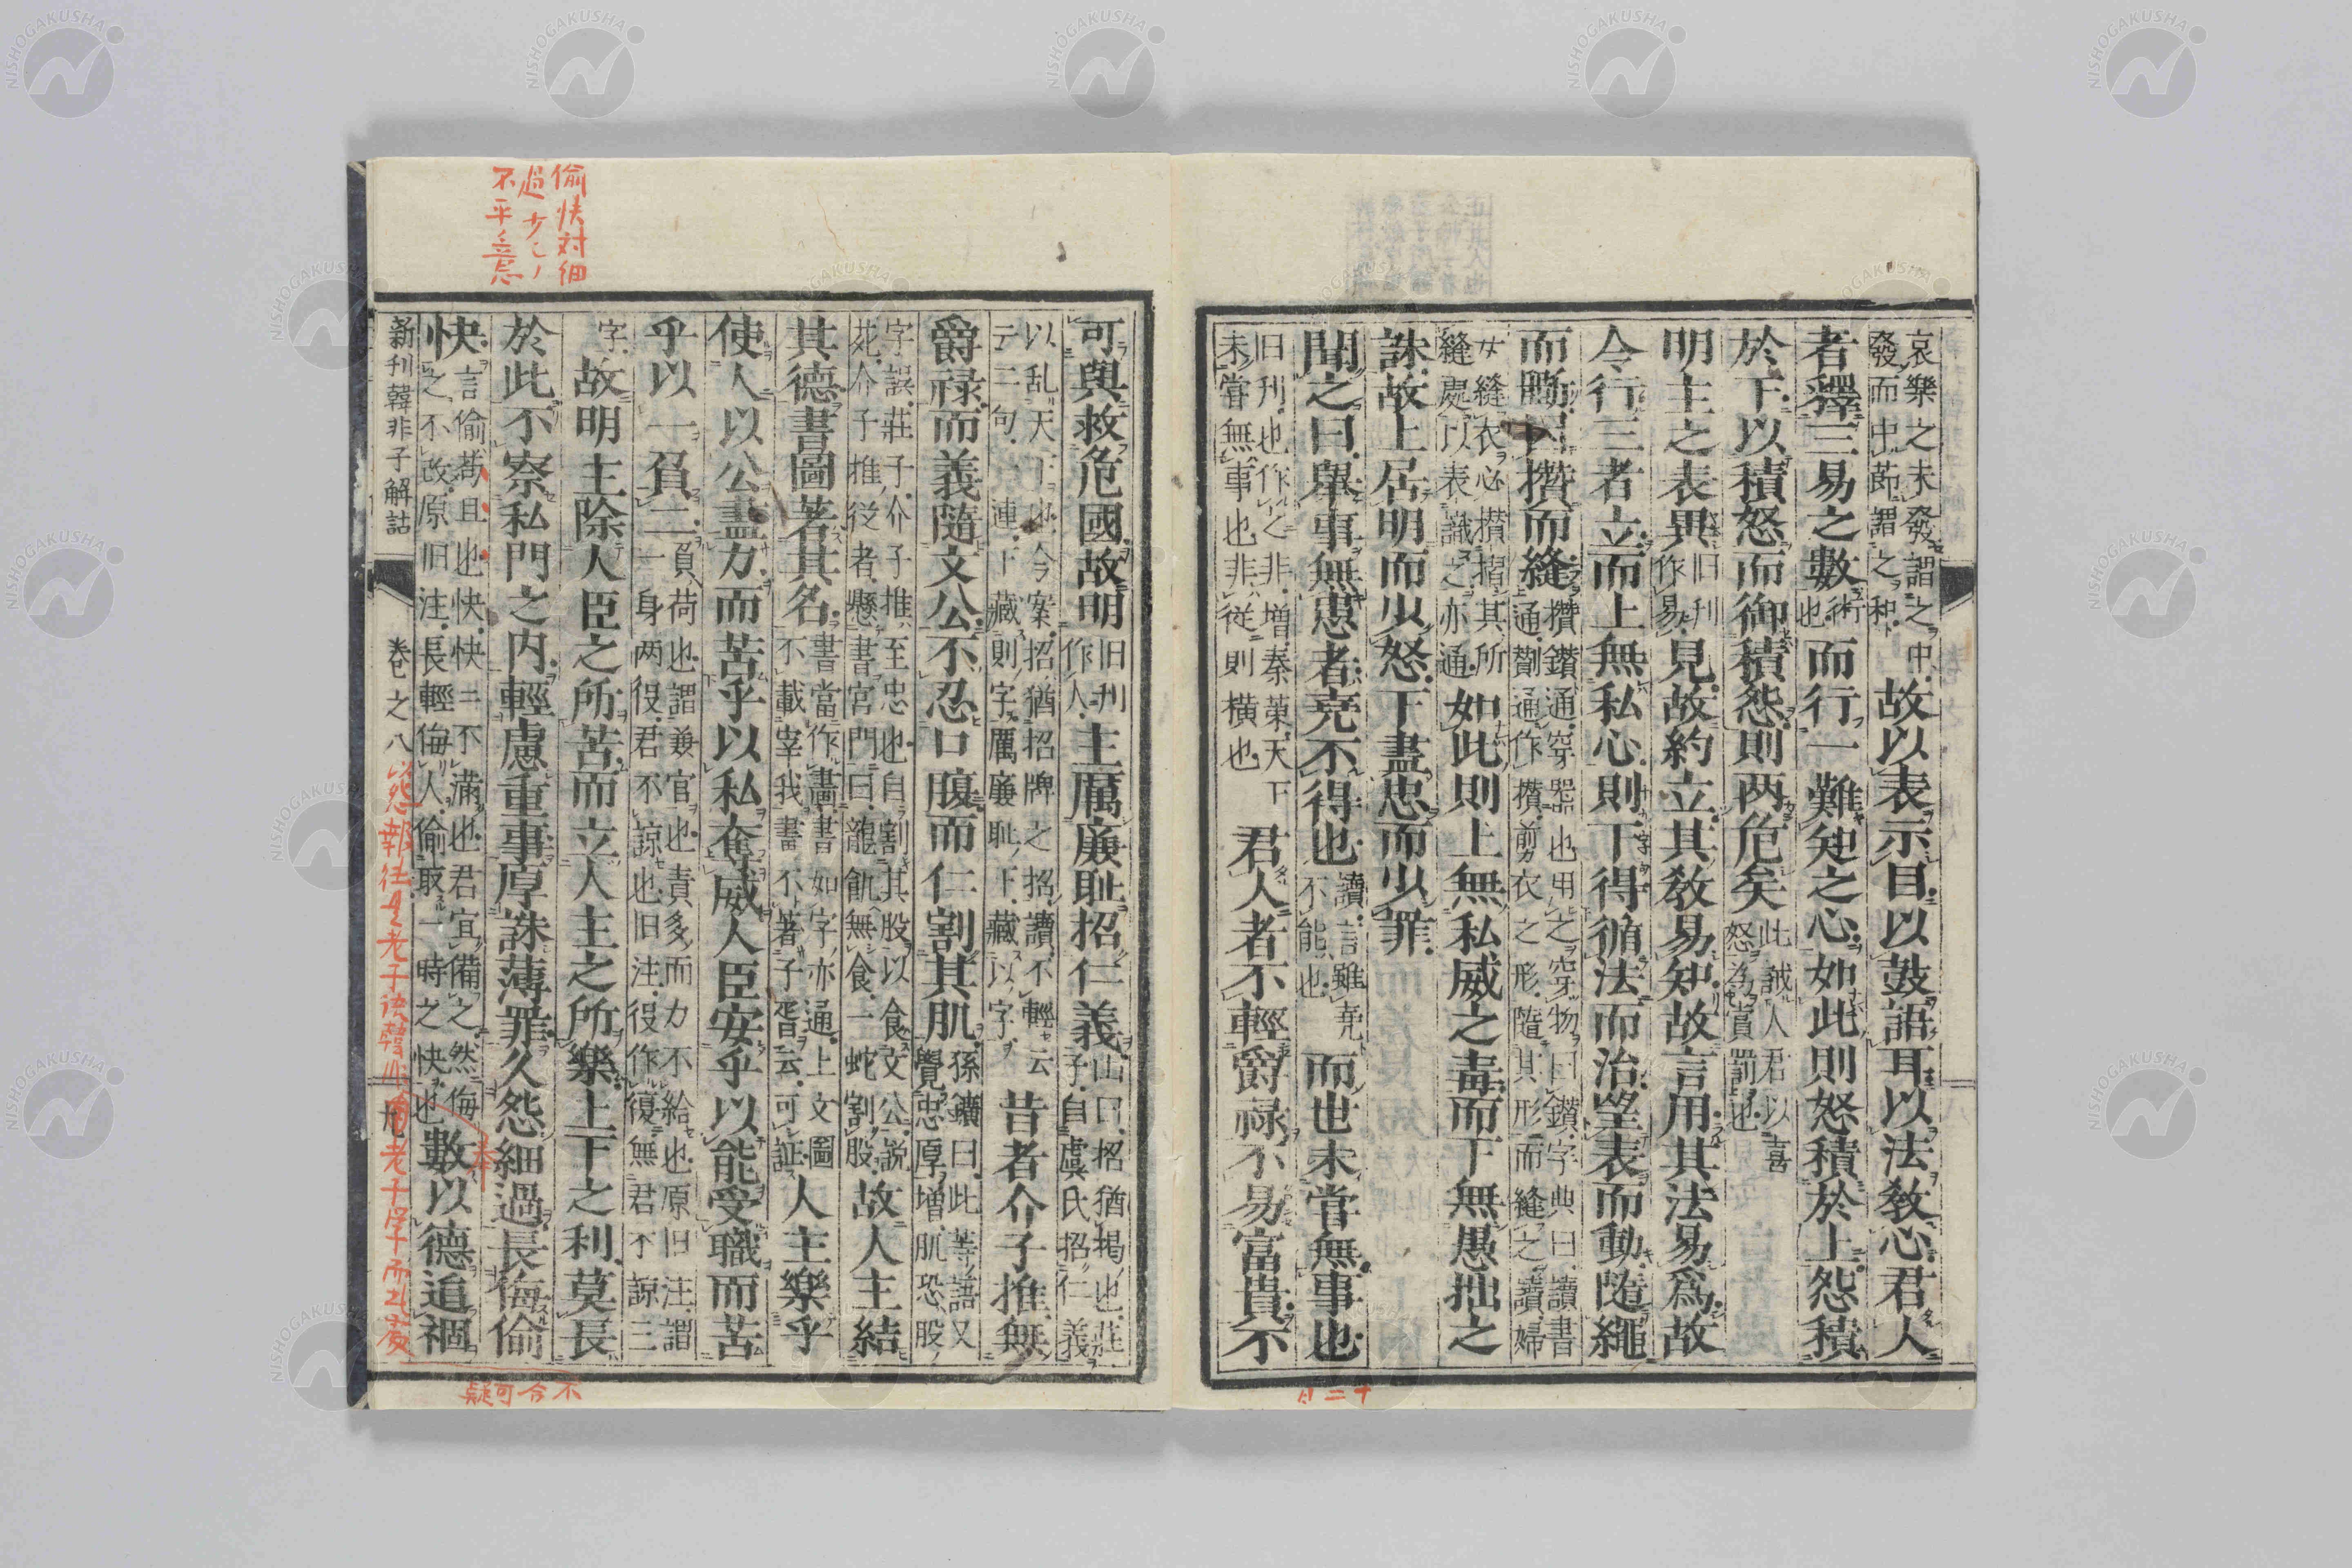 哀樂之未發謂之中
發而中節謂之和
故以表示目以鼓語耳以法教心君人
者釋三易之數
術
也
而行一難知之心如此則怒積於上怨積
於下以積怒而御積怨則两危矣
此誡人君以喜
怒為賞罰也
明主之表異
旧刊
作易
見故約立其教易知故言用其法易為故
令行三者立而上無私心則下得循法而治望表而動隨繩
而斷因攢而縫
攢鑽通穿器也用之穿物曰鑽字典曰讀書
通劗通作攢剪衣之形隨其形而縫之讀婦
女縫衣必攢摺其所
縫處以表識之亦通
如此則上無私威之毒而下無愚拙之
誅故上居明而少怒下盡忠而少罪
聞之曰舉事無患者尭不得也
讀言雖尭
不能也
而世未嘗無事也
旧刊也作之非増秦策天下
未嘗無事也非従則横也
君人者不輕爵禄不易富貴不
可與救危國故明
旧刊
作人
主厲廉耻招仁義
山曰招猶掲也荘
子自虞氏招仁義
以乱天下也今案招猶招牌之招讀不輕云
云二句連下藏則字厲廉耻下藏以字
昔者介子推無
爵禄而義隨文公不忍口腹而仁割其肌
孫鑛曰此等語又
覺忠厚増肌恐股
字誤荘子介子推至忠也自割其股以食文公説
苑介子推従者懸書宮門曰龍飢無食一蛇割股
故人主結
其德書圖著其名
書當作畫書如字亦通上文圖
不載宰我書不著子胥云可証
人主樂乎
使人以公盡力而苦乎以私奪威人臣安乎以能受職而苦
乎以一負二
負荷也謂兼官也責多而力不給也原旧注謂
一身两役君不諒也旧注役作復無君不諒三
字
故明主除人臣之所苦而立人主之所樂上下之利莫長
於此不察私門之内輕慮重事厚誅薄罪久怨細過長侮偷
快
言偷苟且也快快ニ不滿也君宜備之然侮
之不改原旧注長輕侮人偷取一時之快也
數以德追禍
新刊韓非子解詁
巻之八
九
偷快対細
過
不平ノ意
不合可疑
十二月